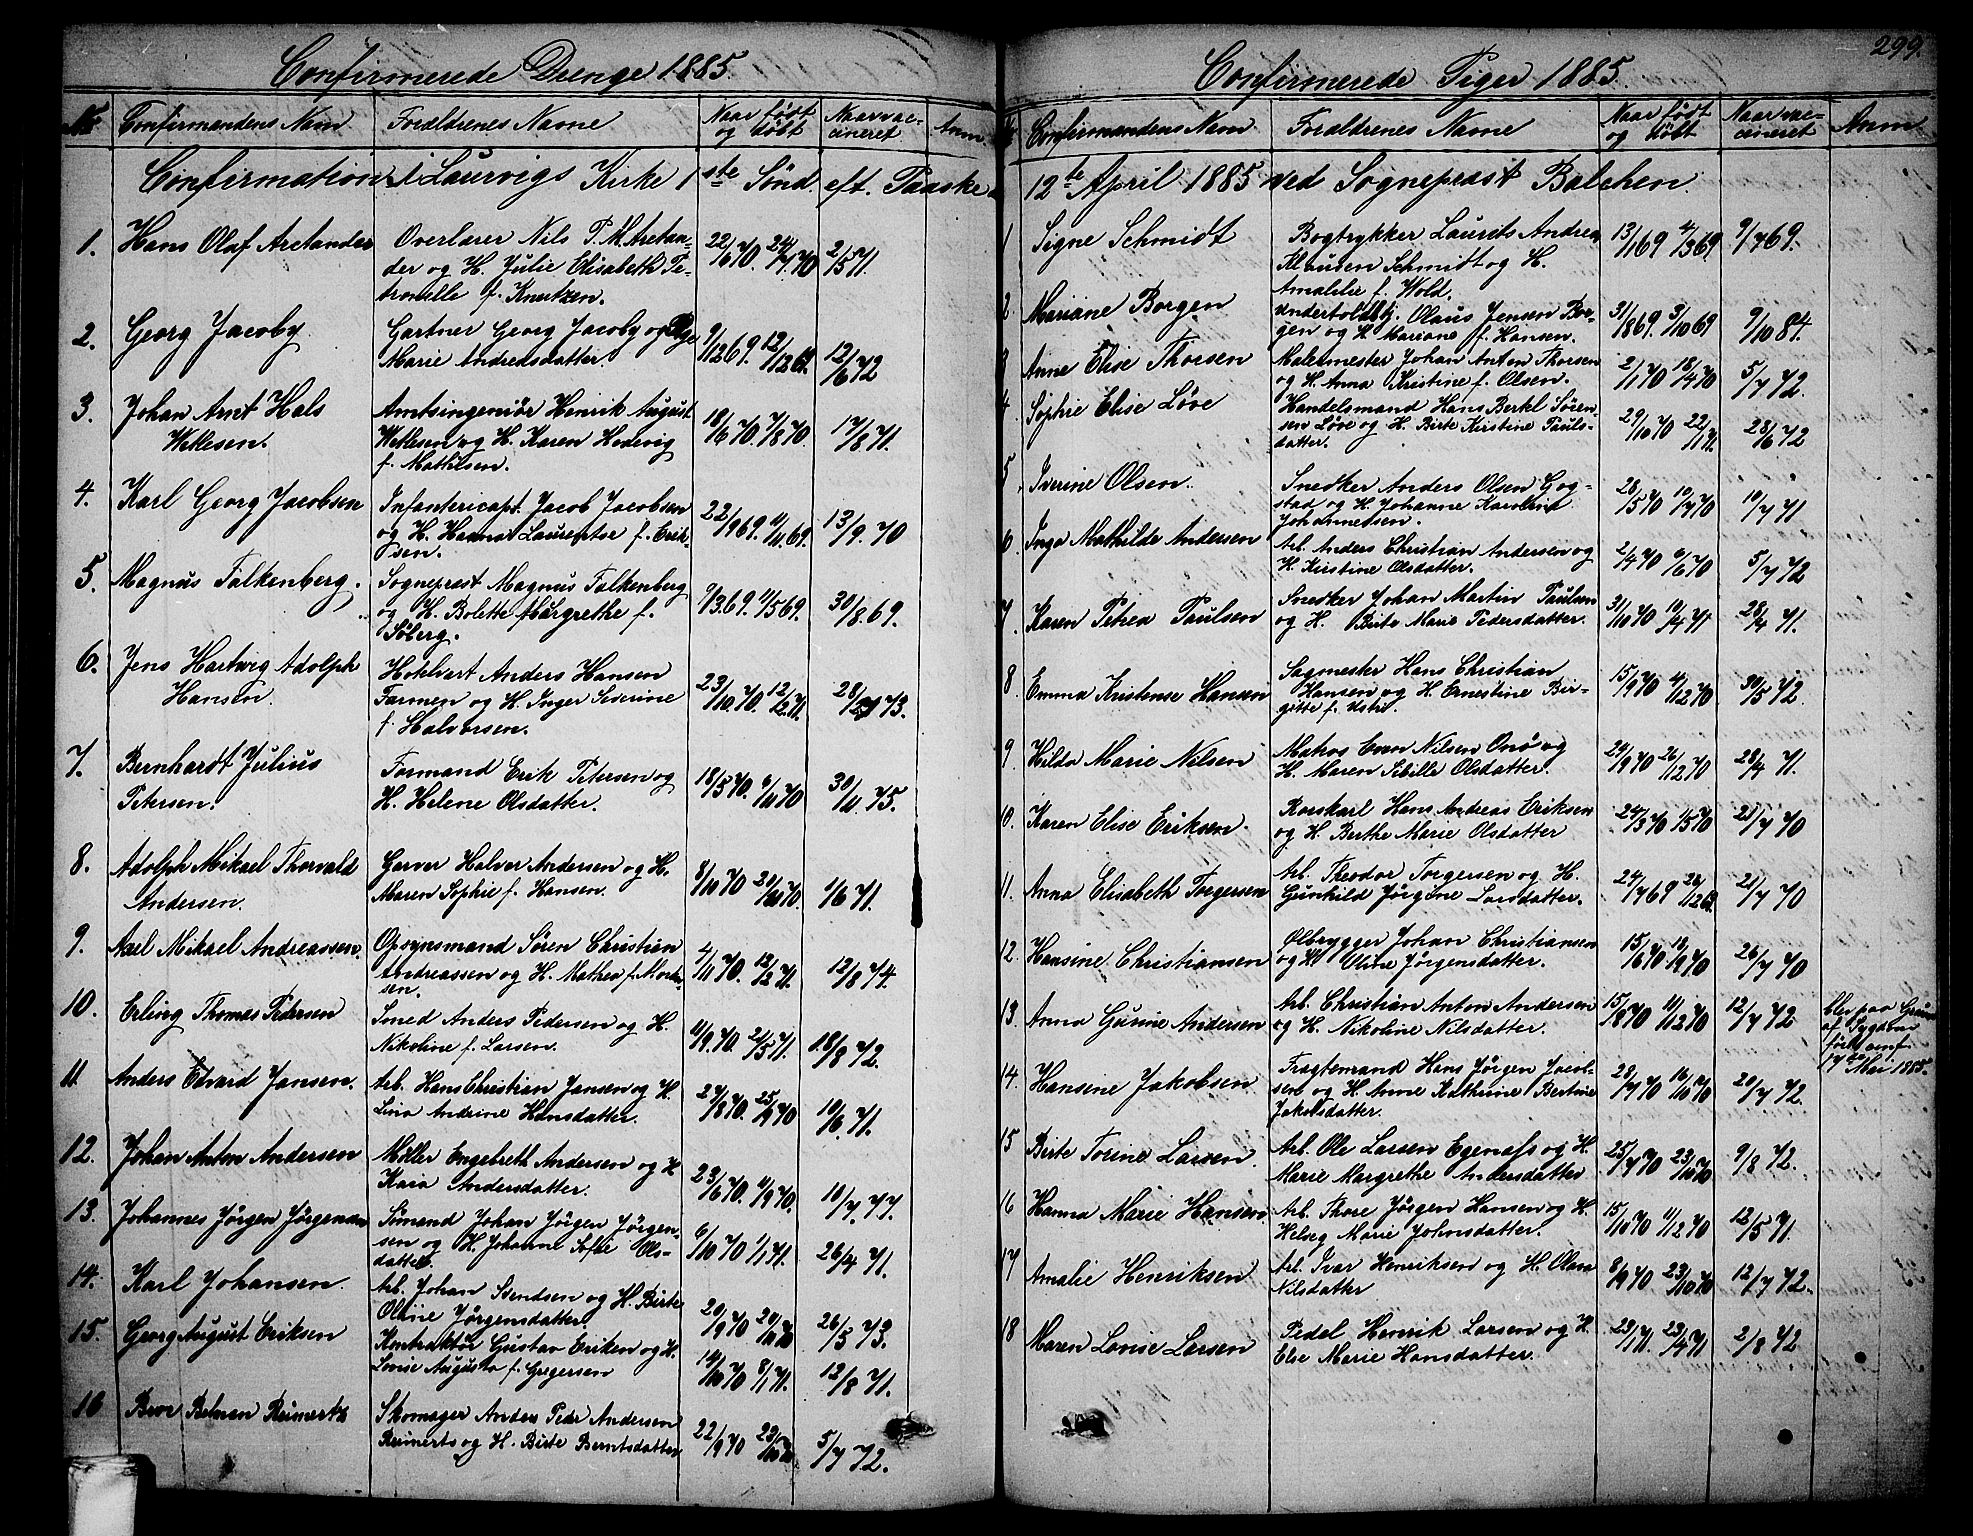 Confirmerede Drenge 1885.
No
Confirmandens Navn
Forældrenes Navne
Naar født
og døbt
Naar vac-
cineret
Anm.
Confirmation i Laurvigs Kirke 1ste Sønd. eft. Paaske
1. Hans Olaf Arctander
Overlærer Nils P. M. Arctan-
der og H. Julie Elisabeth Pe-
tronelle f. Knutzen.
22/6 70. 24/7 70 2/5 71.
2. Georg Jacoby
Gartner Georg Jacoby og
Marie Andreasdatter.
9/12 69. 12/12 69. 12/6 72
3. Johan Arnt Hals
Wettesen.
Amtsingeniör Henrik August
Wettesen og H. Karen Hedevig
f. Mathisen.
18/6 70. 7/8 70. 17/8 71.
4. Karl Georg Jacobsen
Infantericapt. Jacob Jacobsen
og H. Hanna Laurentse f. Erik-
sen.
22/9 69. 11/11 69. 13/9. 70
5. Magnus Falkenberg.
Sogneprest Magnus Falkenberg
og H. Bolette Margrethe f.
Søberg.
9/3 69. 11/5 69. 30/8. 69.
6. Jens Hartvig Adolph
Hansen.
Hotelvert Anders Hansen
Farmen og H. Inger Severine
f. Halvorsen.
23/10. 70. 12/2 71. 28/2 73.
7. Bernhardt Julius
Petersen.
Formand Erik Petersen og
H. Helene Olsdatter.
18/5 70. 6/11 70 30/11. 75.
8. Adolph Mikael Thorvald
Andersen.
Garver Halvor Andersen og H.
Maren Sophie f. Hansen.
8/10 70 21/10 70. 1/6 71.
9. Axel Mikael Andreassen.
Opsynsmand Søren Christian
Andreassen og H. Mathea f. Morten-
sen.
4/11 70. 12/2 71. 12/8 74.
10. Erling Thomas Pedersen
Smed Anders Pedersen og H.
Nikoline f. Larsen.
11/9. 70. 21/5 71. 18/8 72.
11 Anders Edvard Jansen.
Arb. Hans Christian Jansen og H.
Lina Andrine Hansdatter.
27/8 70. 25/9 70 10/6. 71.
12. Johan Anton Andersen
Møller Engebreth Andersen og H
Kara Andersdatter.
23/6 70. 11/9 70. 10/7. 77.
13. Johannes Jörgen Jörgensen
Sömand Johan Jörgen Jörgen-
sen og H. Johanne Sofie Ols-
datter.
6/10 70 1/1 71. 26/4 71.
14. Karl Johansen.
Arb. Johan Svendsen og H. Birte
Oline Jörgensdatter
20/9 70 20/11 70 26/5 73.
15. Georg August Eriksen
Kontraktör Gustav Eriksen og H.
Lovise Augusta f. Gregersen
14/10 70 8/1 71. 12/8 71.
16 Bernt Reinerts
Skomager Anders Peder Andersen
Reinerts og H. Birte Berntsdatter
22/9 70 23/10 70 5/7 72.
299.
Confirmerede Piger 1885.
Confirmandens Navn
Forældrenes Navne
Naar født
og døbt
Naar vac-
cineret
Anm
12te April 1885 ved Sogneprest Balchen.
1 Signe Schmidt
Bogtrykker Laurits Andrea
Klausen Schmidt og H.
Amalie f. Wold.
13/1 69 4/3 69. 9/7 69.
2 Mariane Borgen
Underfoldbtj. Olaus Jensen Bor-
gen og H. Mariane f. Hansen.
31/8 69. 3/10 69 9/10 84.
3 Anne Elise Thorsen
Malermester Johan Anton Thorsen
og H. Anna Kristine f. Olsen.
2/1 70 18/4 70 5/7 72.
4. Sophie Elise Löve
Handelsmand Hans Berkl Sören-
sen Löve og H. Birte Kirstine Pauls-
datter.
29/10 70 22/1 71. 28/6 72
5 Iverine Olsen.
Snedker Anders Olsen Gog-
stad og H. Johanne Karoline
Johannessen.
28/5 70 10/7 70 10/7 71
6 Inga Mathilde Andersen
Arb. Anders Christian Andersen og
H. Kirstine Olsdatter.
2/4 70 6/6 70 5/7 72
7. Karen Petrea Paulsen
Snedker Johan Martin Paulsen
og H. Birte Marie Pedersdatter.
31/10 70 10/4 71 28/4 71.
8. Emma Kristense Hansen
Sagmester Hans Christian
Hansen og H. Ernestine Bir-
gitte f.
15/9 70 4/12 70 30/5 72.
9 Hilda Marie Nilsen
Matros Even Nilsen Onö og
H. Maren Sibille Olsdatter.
29/9 70 26/12 70 28/4 71.
10. Karen Elise Eriksen.
Korskarl Hans Andreas Eriksen
og H. Berthe Marie Olsdatter
24/3 70 1/5 70 21/7 70
11. Anna Elisabeth Torgersen
Arb. Theodor Torgersen og H.
Gunhild Jörgine Larsdatter.
27/7 69 26/12 69. 21/7 70
12. Hansine Christiansen
Ölbrygger Johan Christiansen
og H. Oline Jörgensdatter.
15/6 70. 18/9 70 26/7 70
13. Anna Gurine Andersen
Arb. Christian Anton Andersen
og H. Nikoline Nilsdatter.
15/8 70 11/12 70 12/7 72
blev paa Grund
af Sygdom
først conf.
17de Mai 1885.
14. Hansine Jakobsen
Fragtemand Hans Jörgen Jacob-
sen og H. Anne Kathrine Bertine
Jakobsdatter.
22/7 70 16/10 70 20/7 72.
15 Birte Torine Larsen.
Arb. Ole Larsen Egenæss og H.
Marie Margrethe Andersdatter
25/7 70 23/10 70 9/8 72.
16 Hanna Marie Hansen
Arb. Thore Jörgen Hansen og H.
Helseg Marie Johnsdatter.
15/10 70 11/12 70 12/5 71.
17 Amalie Henriksen
Arb. Ivar Henriksen og H. Olava
Nilsdatter
8/9 70 23/10 70 12/7 72.
18 Maren Lovise Larsen
Pedel Henrik Larsen og H.
Else Marie Hansdatter.
23/1 71. 23/4 71 2/8 72